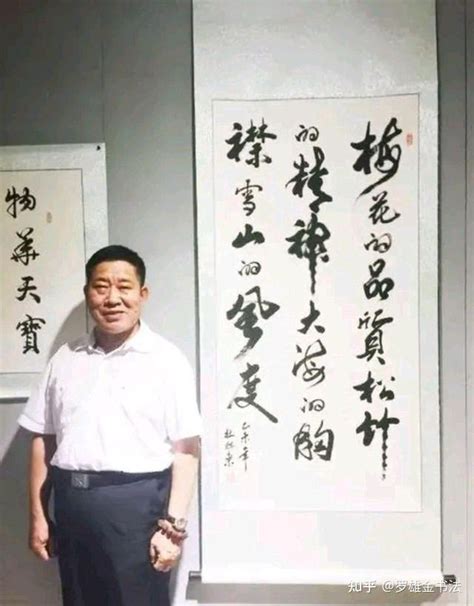 梅花的品質松竹
的精神大海的胸
襟雪山的風度
乙未年
物華天寶
知乎 @罗雄金书法